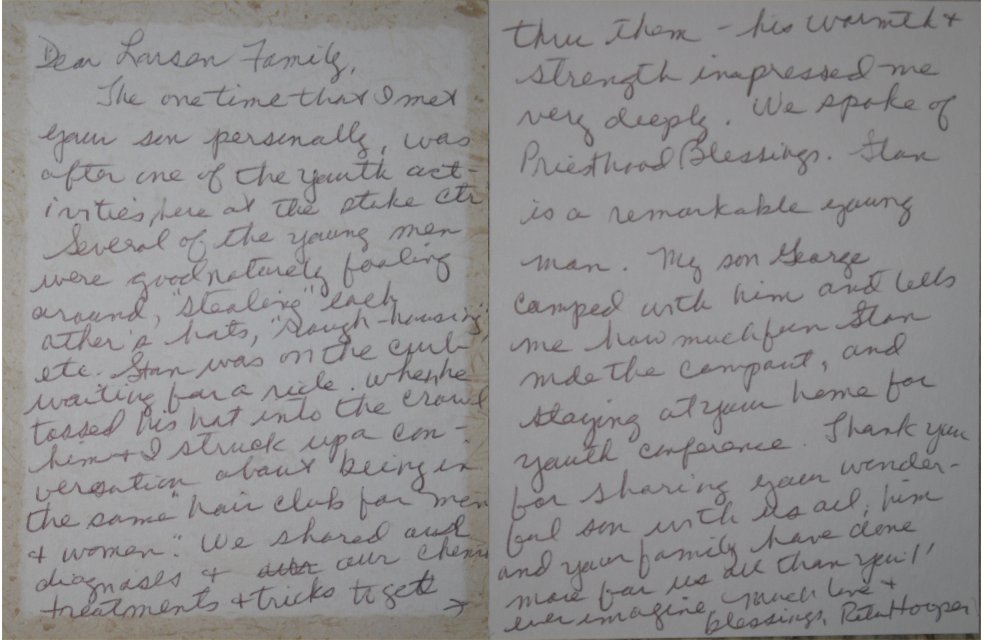 Dear Larsen Family,
The one time that I met
your son personally, was
after one of the youth act-
ivities, here at the stake ctr
Several of the young men
were goodnaturely fooling
around, "stealing" each
other's hats, "rough-housing",
etc. Stan was on the curb
waiting for a ride. When he
tossed his hat into the crowd
him & I struck up a con-
versation about being in
the same "hair club for men
& women". We shared our
diagnoses & our chemo
treatments & tricks to get
thru them - his warmth &
strength impressed me
very deeply. We spoke of
Priesthood Blessings. Stan
is a remarkable young
man. My son George
camped with him and tells
me how much fun Stan
mde the campout, and
staying at your home for
youth conference. Thank you
for sharing your wonder-
ful son with us all, him
and your family have done
more for us all than you'll
ever imagine, Much love &
blessings, Hooper